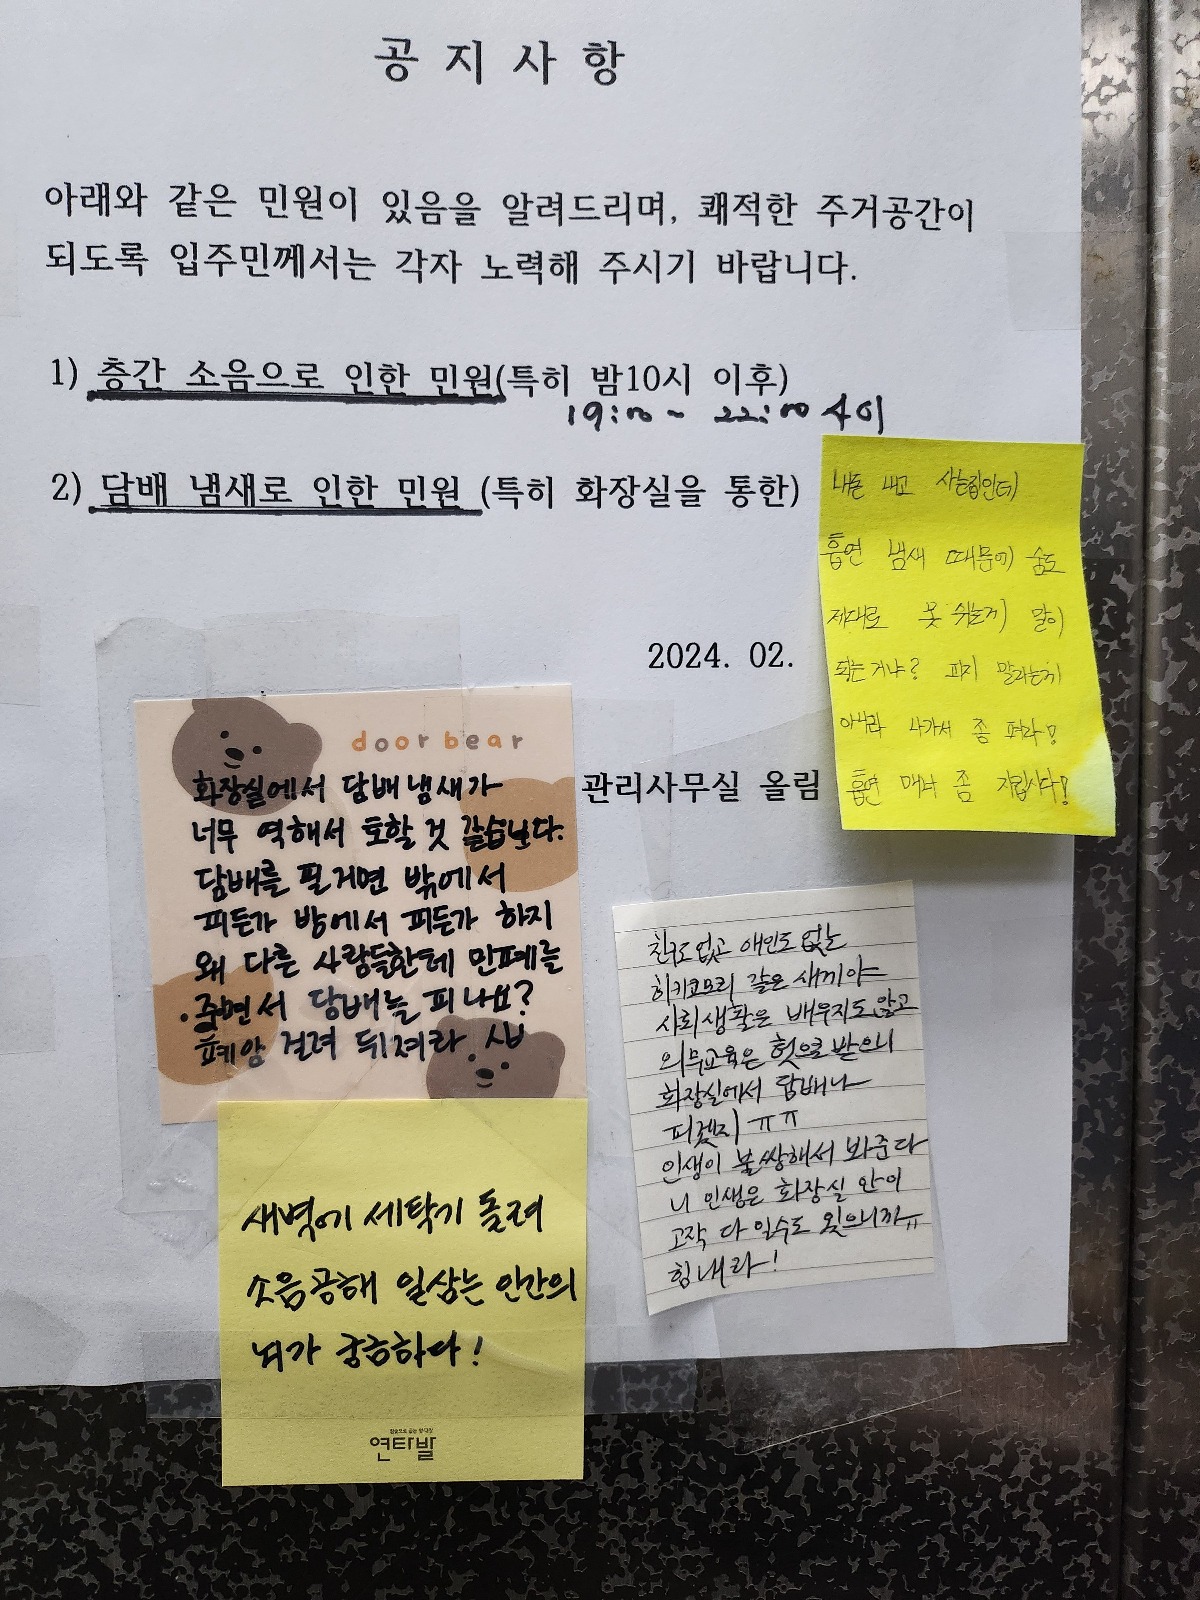 공지사항
아래와 같은 민원이 있음을 알려드리며, 쾌적한 주거공간이
되도록 입주민께서는 각자 노력해 주시기 바랍니다.
1) 층간 소음으로 인한 민원(특히 밤10시 이후)
19:00~ 22:00 사이
2) 담배 냄새로 인한 민원 (특히 화장실을 통한)
2024. 02.
관리사무실 올림
내돈 내고 사는집인데
흡연 냄새 때문에 숨도
제대로 못 쉬는게 말이
되는거냐? 피지 말라는게
아니라 나가서 좀 펴라!
흡연 매너 좀 지킵시다!
door bear
화장실에서 담배냄새가
너무 역해서 토할 것 같습니다.
담배를 필거면 밖에서
피든가 방에서 피든가 하지
왜 다른 사람들한테 민폐를
주면서 담배를 피나요?
폐암 걸려 뒤져라. 씨
친구도 없고 애인도 없는
히키코모리 같은 새끼야
사회생활은 배우지도 않고
의무교육은 헛으로 받으니
화장실에서 담배나
피겠지 ㅠㅠ
인생이 불쌍해서 봐준다
니 인생은 화장실 안이
고작 다 일수도 있으니까ㅠ
힘내라!
새벽에 세탁기 돌려
소음공해 일삼는 인간의
뇌가 궁금하다!
연타발